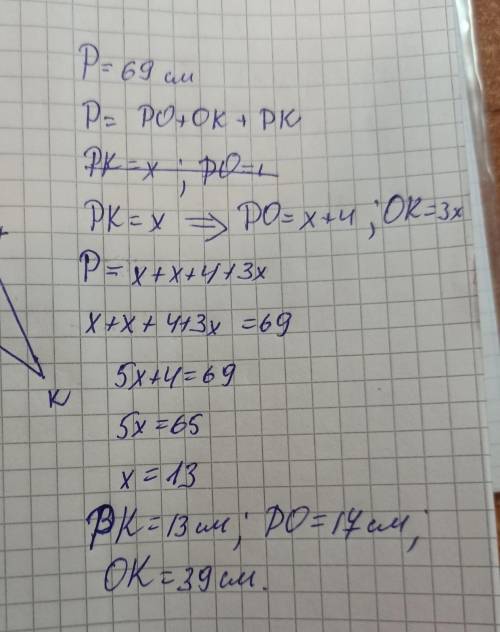 P = 69 см
P = PO + OK + PK
PK = x ; PO =
PK = x ⇒ PO = x+4 ; OK = 3x
P = x + x + 4 + 3x
x + x + 4 + 3x = 69
5x + 4 = 69
K
5x = 65
x = 13
PK = 13 см ; PO = 17 см ;
OK = 39 см.